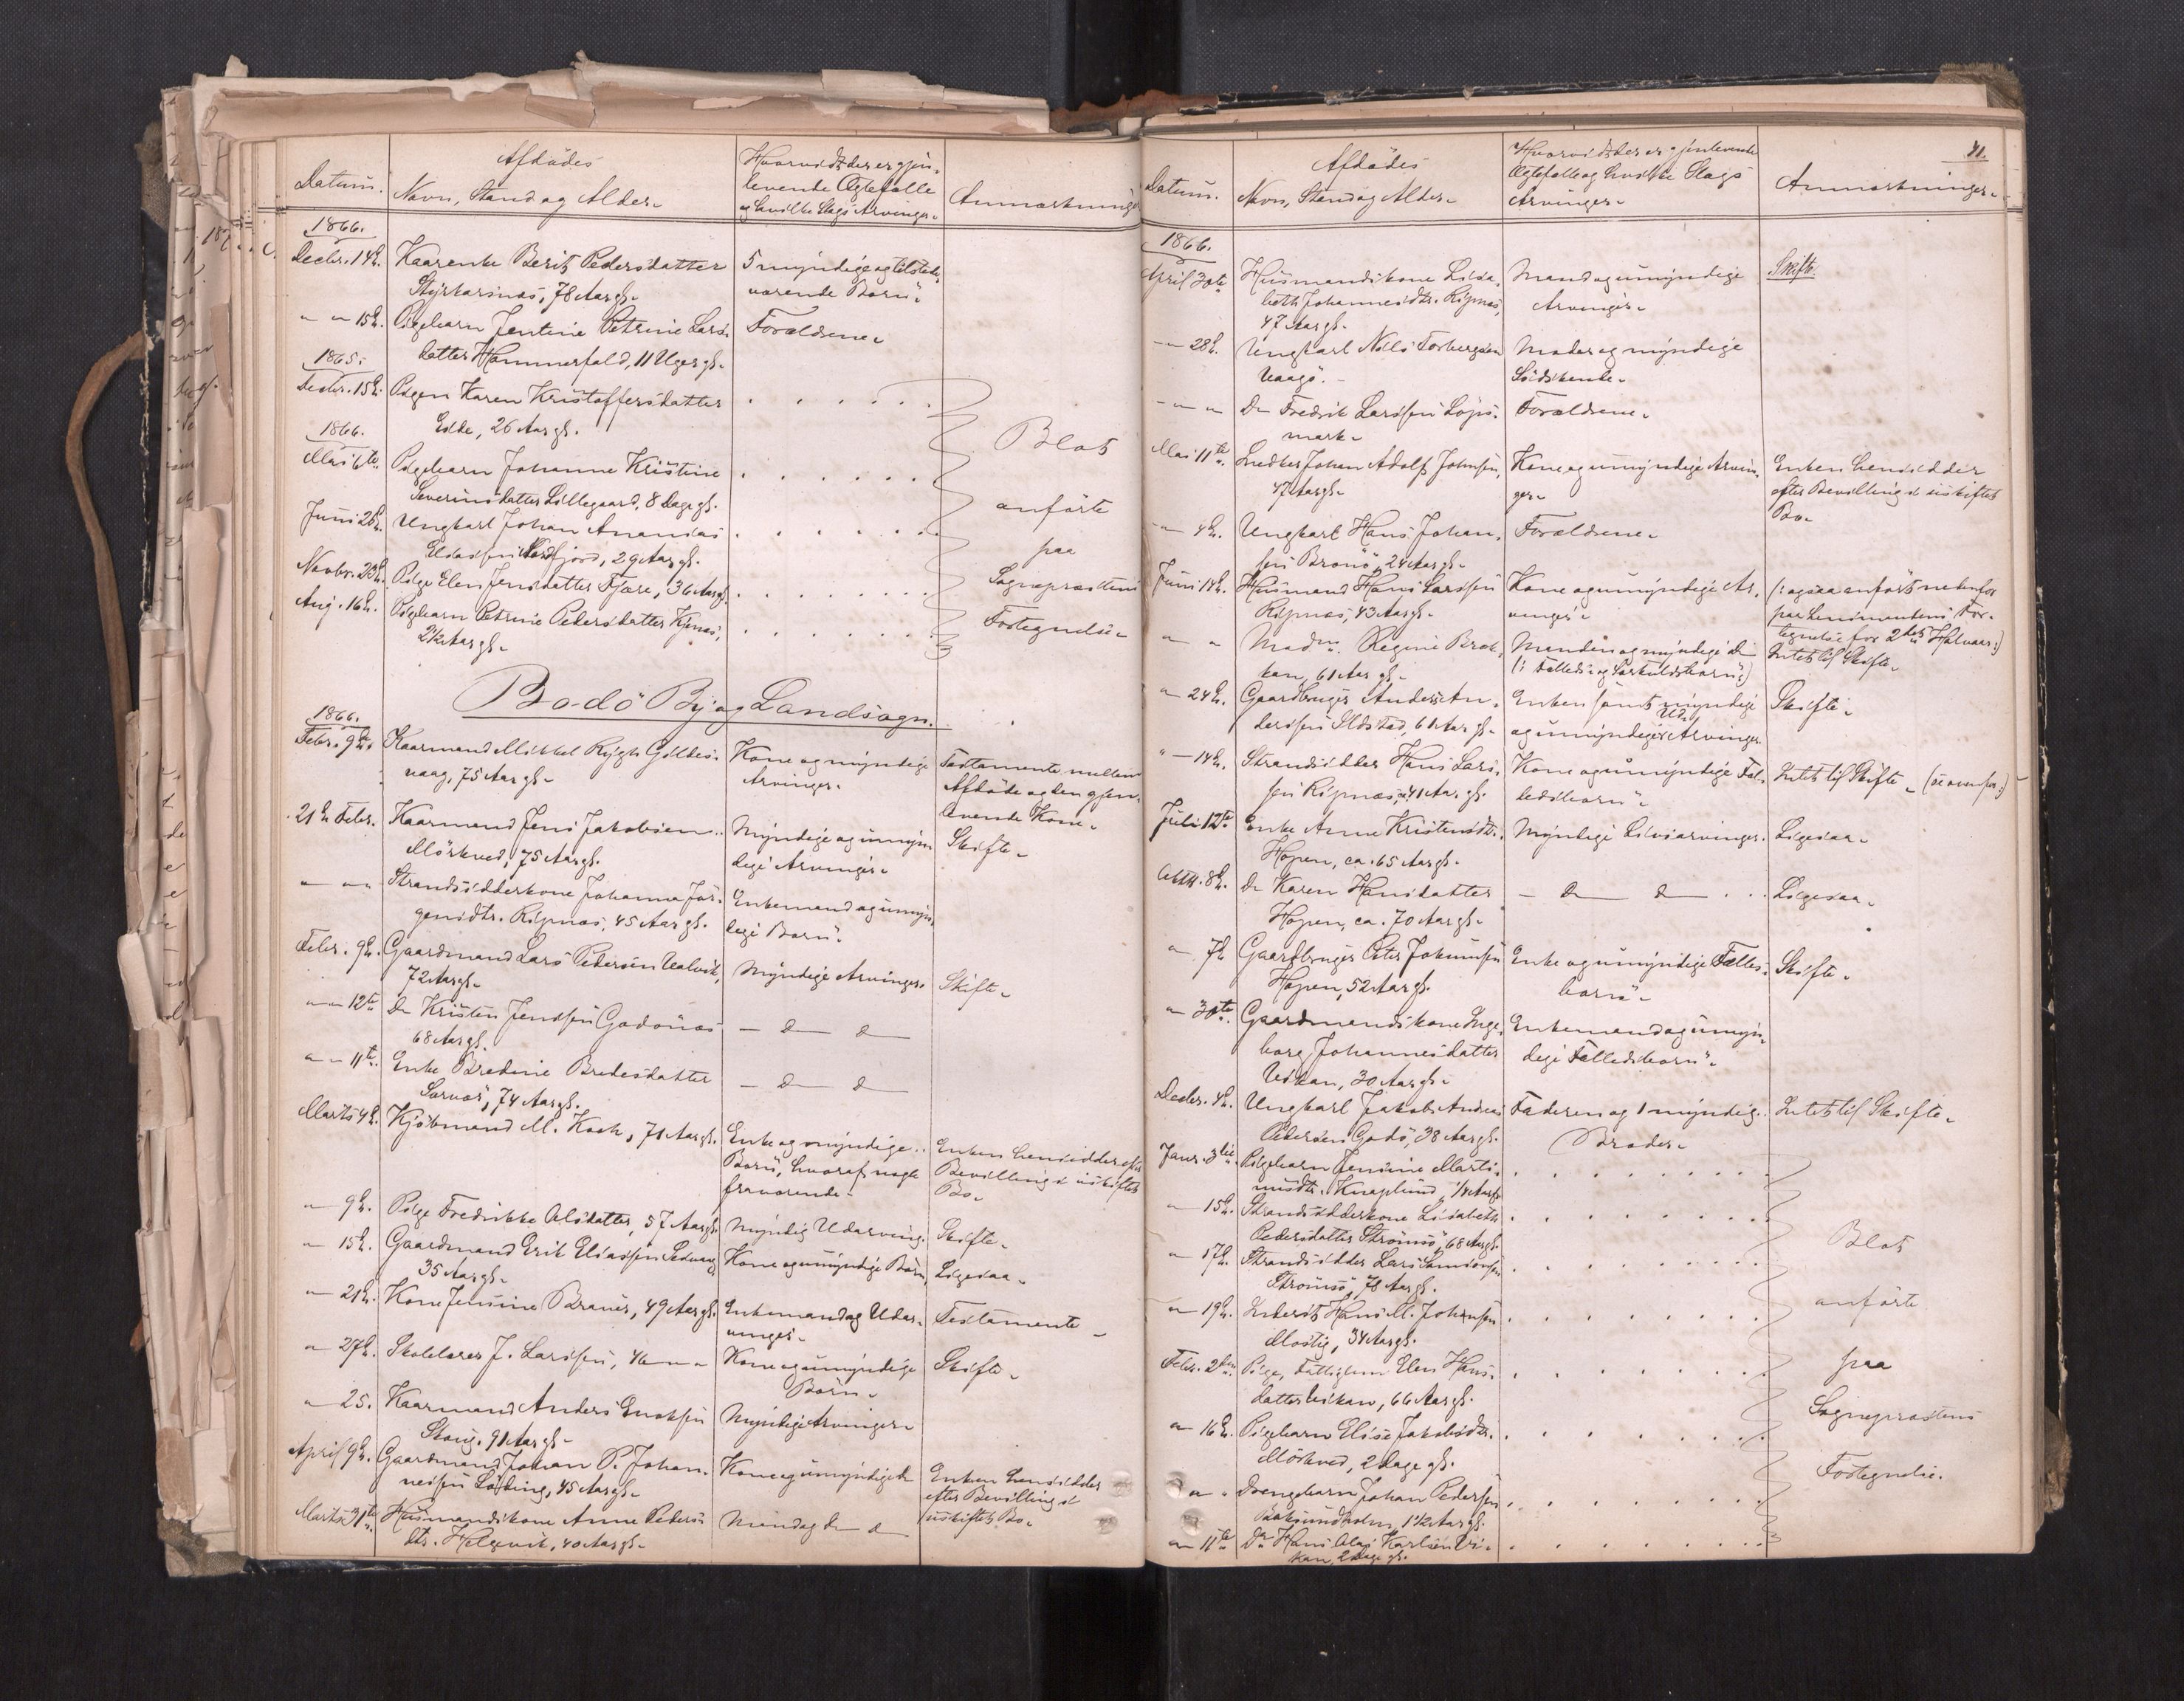 Afdödes
Datum.
Navn, Stand og Alder
Hvorvidt der er gjen-
levende Ægtefælle
og hvilke Slags Arvinger
Anmærkninger
1866.
Decbr. 14de
Kaarenke Berit Pedersdatter
Styrkasnæs, 78 Aar gl.
5 myndige og tilstede-
værende Börn
" " 15de
Pigebarn Jentine Petrine Lars-
datter Hammerfald, 11 Uger gl.
Forældrene
1865.
Decbr. 15de
Pigen Karen Kristoffersdatter
26 Aar gl.
1866.
Mai 6te
Pigebarn Johanne Kristine
Severinsdatter Lillegaard, 8 Dage gl.
Juni 26de
Ungkarl Johan Ananias
29 Aar gl.
Novbr. 23de
Pige Elen Jensdatter Fjære, 36 Aar gl.
Aug. 16de
Pigebarn Petrine Pedersdatter
2½ Aar gl.
Blot
anförte
paa
Sognepræstens
Fortegnelse
Bodö By og Landsogn.
1866.
Febr. 9de
Kaarmand Mikkel Rygh Gildes-
vaag, 75 Aar gl.
Kone og myndige
Arvinger
Testamente mellem
Afdöde og den gjen-
levende Kone
21de Febr.
Kaarmand Jens Jakobsen
Mörkved, 75 Aar gl.
Myndige og umyn-
dige Arvinger
Skifte
" "
Strandsidderkone Johanna Jör-
gensdtr. Ripnæs, 45 Aar gl.
Enkemand og umyn-
dige Börn
Febr. 9de
Gaardmand Lars Pedersen Valvik,
72 Aar gl.
Myndige Arvinger
Skifte
" " 12te
Do Kristen Jensen Godönæs
68 Aar gl.
— Do Do
" " 11te
Enke Bredine Bredesdatter
74 Aar gl.
— Do Do
Marts 4de
Kjöbmand M. Koch, 71 Aar gl.
Enke og myndige
Börn, hvoraf nogle
fraværende
Enken hensidder efter
Bevilling i uskiftet
Bo
" 9de
Pige Fredrikke Olsdatter, 57 Aar gl.
Myndig Udarving
Skifte
" 15de
Gaardmand Erik Eliassen
35 Aar gl.
Kone og umyndige Börn
Ligesaa
" 21de
Kone Jensine Braner, 49 Aar gl.
Enkemand og Udar-
vinger
Testamente
" 27de
Skolelærer J. Larssen, 46 " "
Kone og umyndige
Börn
Skifte
" 25.
Kaarmand Anders Enoksen
Skaug, 91 Aar gl.
Myndige Arvinger
April 9de
Gaardmand Johan P. Johan-
nessen Löding, 45 Aar gl.
Kone og umyndige Do
Enken hensidder
efter Bevilling i
uskiftet Bo
Marts 31te
Husmandskone Anne Peders-
dtr. Helgevik, 40 Aar gl.
Mand og Do Do
41.
Datum.
Afdödes
Navn, Stand og Alder
Hvorvidt der er gjenlevende
Ægtefælle og hvilke Slags
Arvinger
Anmærkninger
1866.
April 30te
Husmandskone Lisa-
beth Johannesdtr. Ripnæs,
47 Aar gl.
Mand og umyndige
Arvinger
Skifte
" 28de
Ungkarl Nils Torbergsen
Vaagö.
Moder og myndige
Södskende
— " "
Do Fredrik Larssen Löps-
mark
Forældrene
Mai 11te
Snedker Johan Adolf Johnsen,
47 Aar gl.
Kone og umyndige Arvin-
ger
Enken hensidder
efter Bevilling i uskiftet
Bo
" 4de
Ungkarl Hans Johan-
sen Bronö, 24 Aar gl.
Forældrene
Juni 14de
Husmand Hans Larssen
Ripnæs, 43 Aar gl.
Kone og umyndige Ar-
vinger
(: ogsaa anfört nedenfor
paa Lensmandens For-
tegnelse for 2det Halvaar :)
" "
Madm. Regine Brek-
kan, 61 Aar gl.
Manden og myndige Do
(: Fælleds og Særkuldsbörn :)
Intet til Skifte
" 24de
Gaardbruger Anders An-
derssen Ildstad, 61 Aar gl.
Enken samt myndige
og umyndige Ud Arvinger
Skifte
" — 14de
Strandsidder Hans Lars-
sen Ripnæs, 41 Aar gl.
Kone og umyndige Fæl-
ledsbörn
Intet til Skifte (se ovenfor :)
Juli 12te
Enke Anne Kristensdtr.
Hopen, ca. 65 Aar gl.
Myndige Livsarvinger
Ligesaa
Oktbr. 8de
Do Karen Hansdatter
Hopen, ca. 70 Aar gl.
— Do Do
Ligesaa
" 7de
Gaardbruger Peter Jokumsen
Hopen, 52 Aar gl.
Enke og umyndige Fælles-
börn
Skifte
" 30te
Gaardmandskone Inge-
borg Johannesdatter
Vikan, 30 Aar gl.
Enkemand og umyn-
dige Fælledsbörn
Decbr. 4de
Ungkarl Jakob Andreas
Pedersen Godö, 38 Aar gl.
Faderen og 1 myndig
Broder
Intet til Skifte
Janr. 3die
Pigebarn Jensine Marti-
nusdtr. Knaplund, ¼ Aar gl.
" 15de
Strandsidderkone Lisabeth
Pedersdatter Strömsö, 68 Aar gl.
" 17de
Strandsidder Lars Samsonsen
Strömsö, 78 Aar gl.
" 19de
Inderst Hans M. Johansen
34 Aar gl.
Febr. 2den
Pige, Fattiglem Elen Hans-
datter Vikan, 66 Aar gl.
" 16de
Pigebarn Elise Jakobsdtr.
Mörkved, 2 Dage gl.
" "
Drengebarn Johan Pedersen
1½ Aar gl.
" 11te
Do Hans Olaj Karlsen Vi-
kan, 2 Dage gl.
Blot
anförte
paa
Sognepræstens
Fortegnelse.